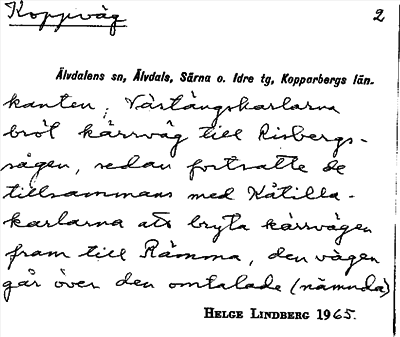 Koppväg 2
Älvdalens sn, Älvdals, Särna o. Idre tg, Kopparbergs län.
kanten; Västängskarlarna
bröt kärrväg till Risbergs-
sågen, sedan fortsatte de
tillsammans med Kåtilla-
karlarna att bryta kärrvägen
fram till Rämma, den vägen
går över den omtalade (nämnda)
HELGE LINDBERG 1965.